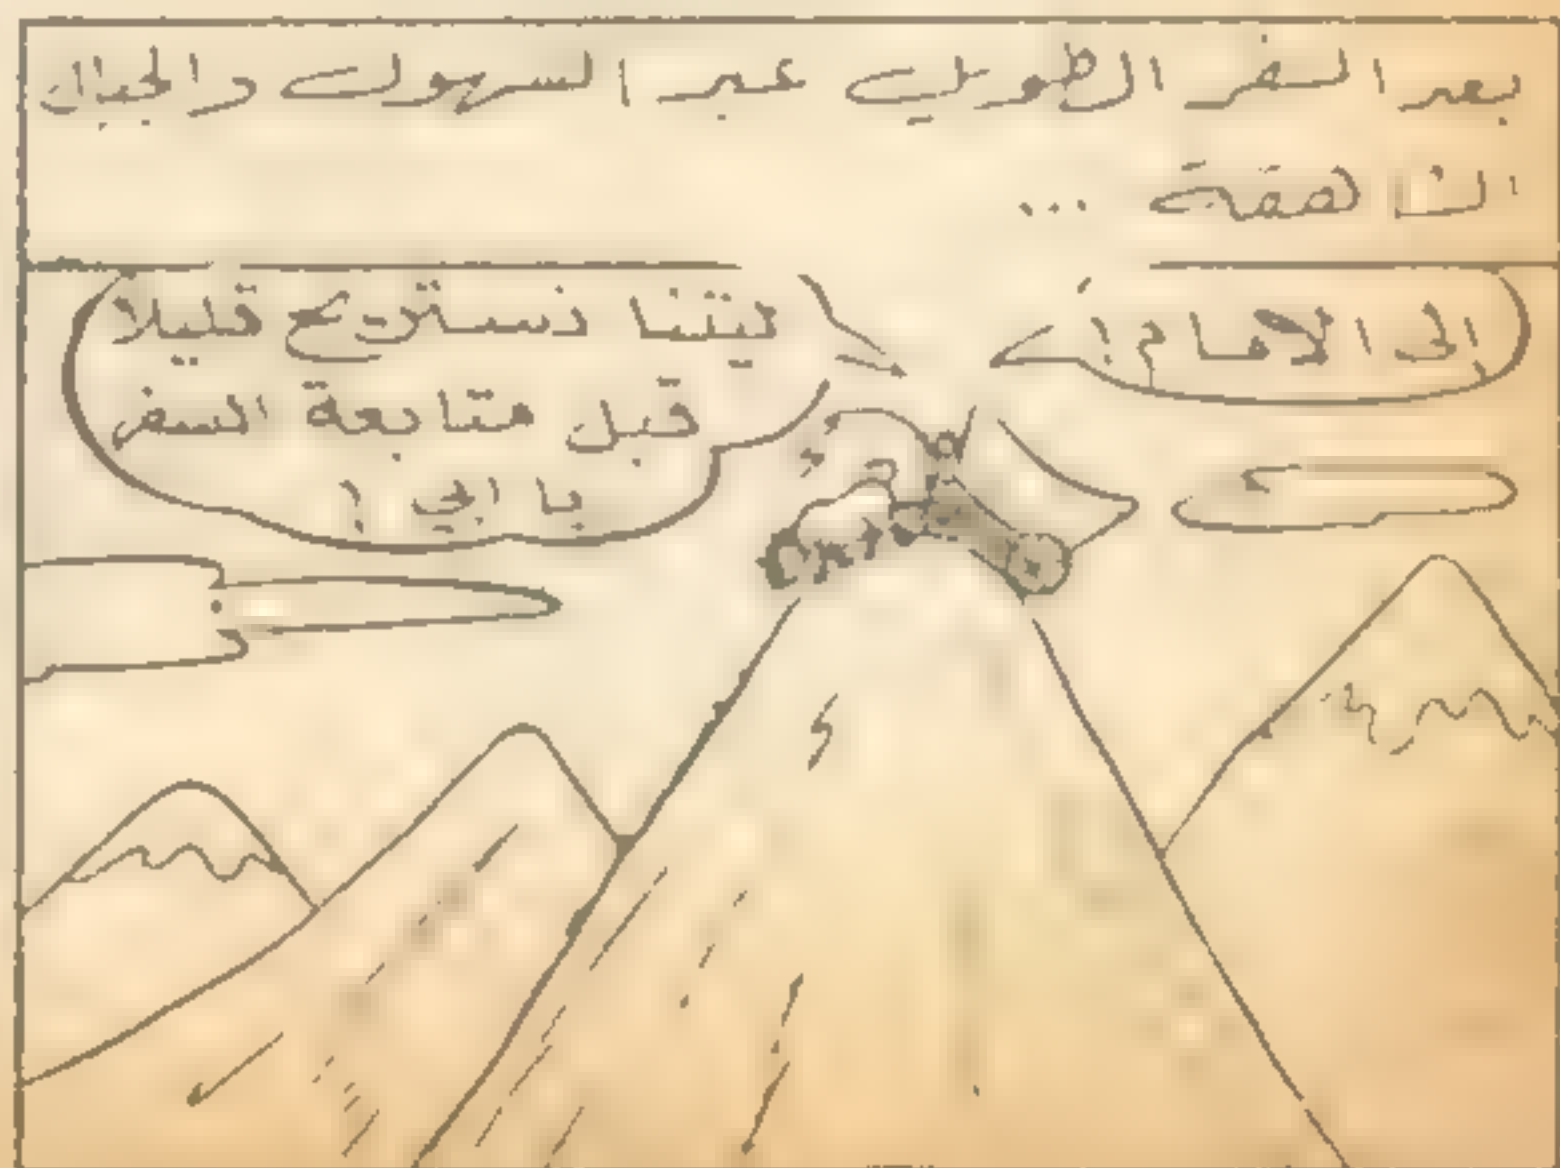 بعد السفر الطويل عبر السهول والجبال
الشاهقة ...
إلى الامام !
ليتنا نستريح قليلا
قبل متابعة السفر
يا ابي !